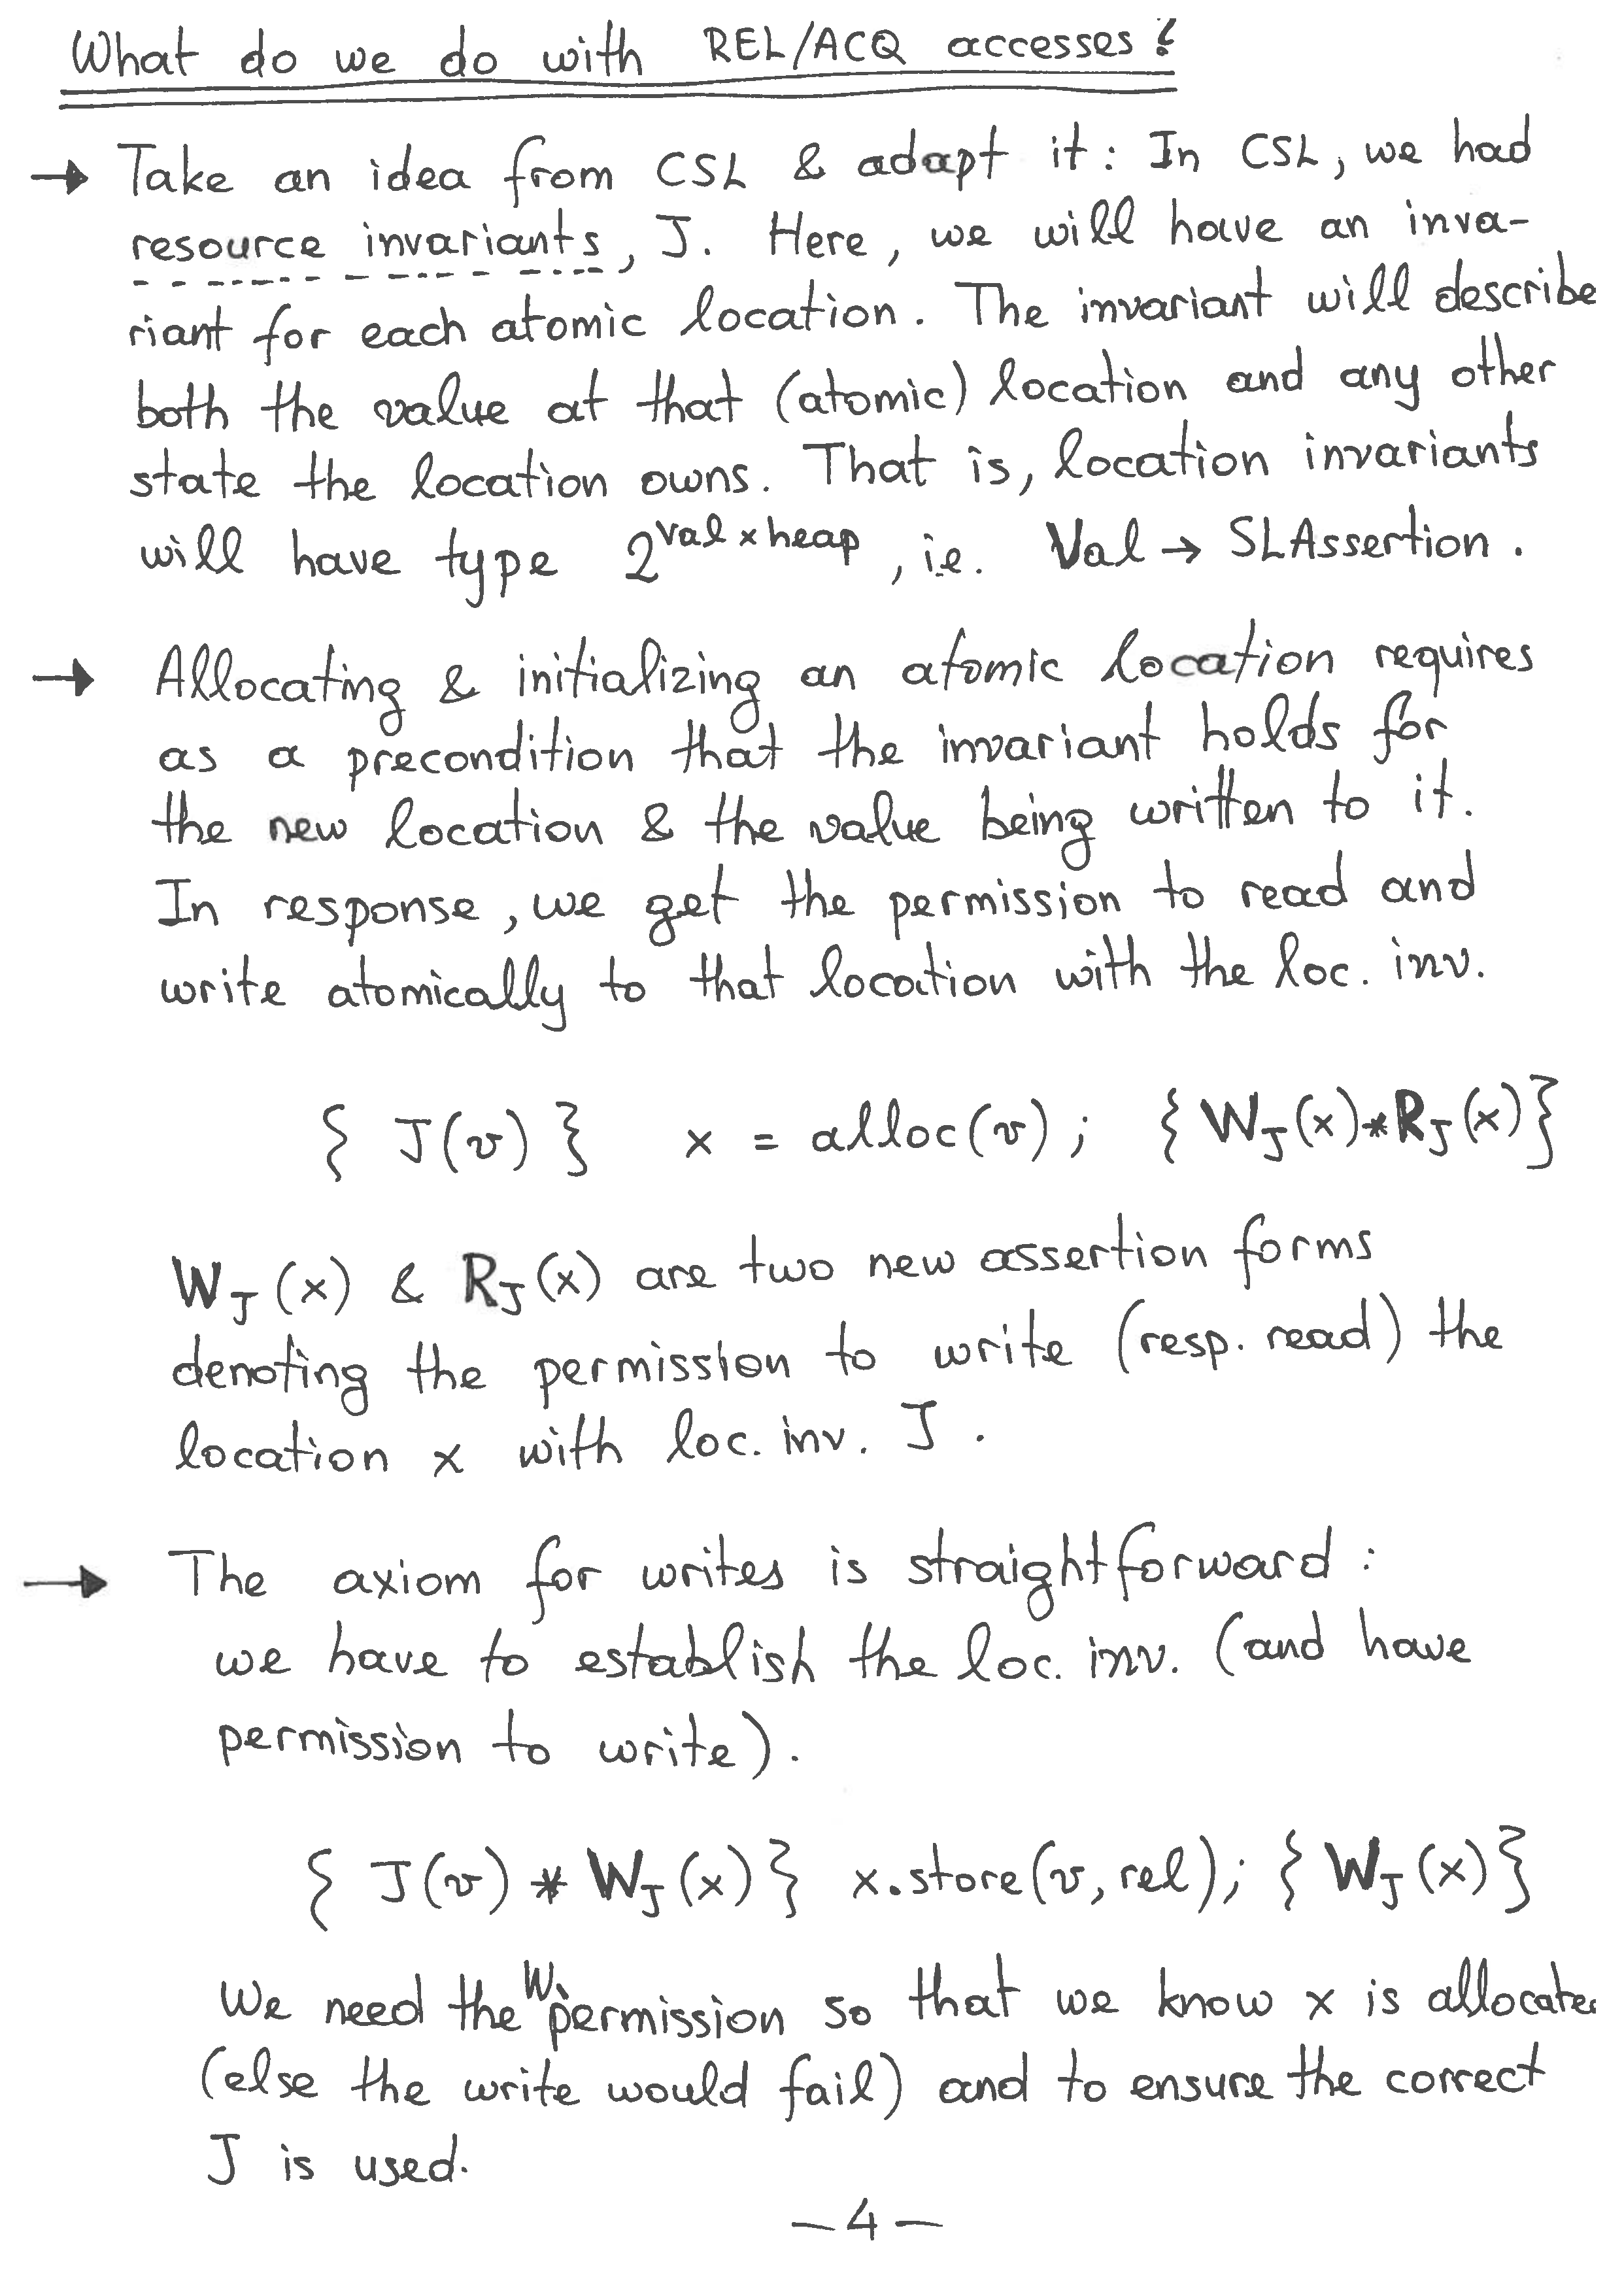 What do we do with REL/ACQ accesses?
→ Take an idea from CSL & adapt it: In CSL, we had
resource invariants, J. Here, we will have an inva-
riant for each atomic location. The invariant will describe
both the value at that (atomic) location and any other
state the location owns. That is, location invariants
will have type 2^{Val × heap}, i.e. Val → SLAssertion.
→ Allocating & initializing an atomic location requires
as a precondition that the invariant holds for
the new location & the value being written to it.
In response, we get the permission to read and
write atomically to that location with the loc. inv.
{ J(v) } x = alloc(v); { W_J(x) * R_J(x) }
W_J(x) & R_J(x) are two new assertion forms
denoting the permission to write (resp. read) the
location x with loc. inv. J.
→ The axiom for writes is straightforward:
we have to establish the loc. inv. (and have
permission to write).
{ J(v) * W_J(x) } x.store(v, rel); { W_J(x) }
We need the W permission so that we know x is allocated
(else the write would fail) and to ensure the correct
J is used.
– 4 –